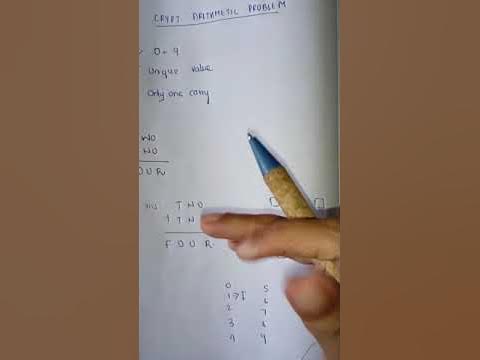 CRYPT ARITHMETIC PROBLEM
0 - 9
Unique value
Only one carry
WO
WO
OUR
T W O
1 T W
F O U R
0 5
1 → F 6
2 7
3 8
4 9